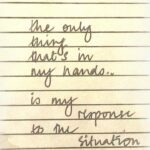 the only
thing
that's in
my hands..
is my
response
to the
situation